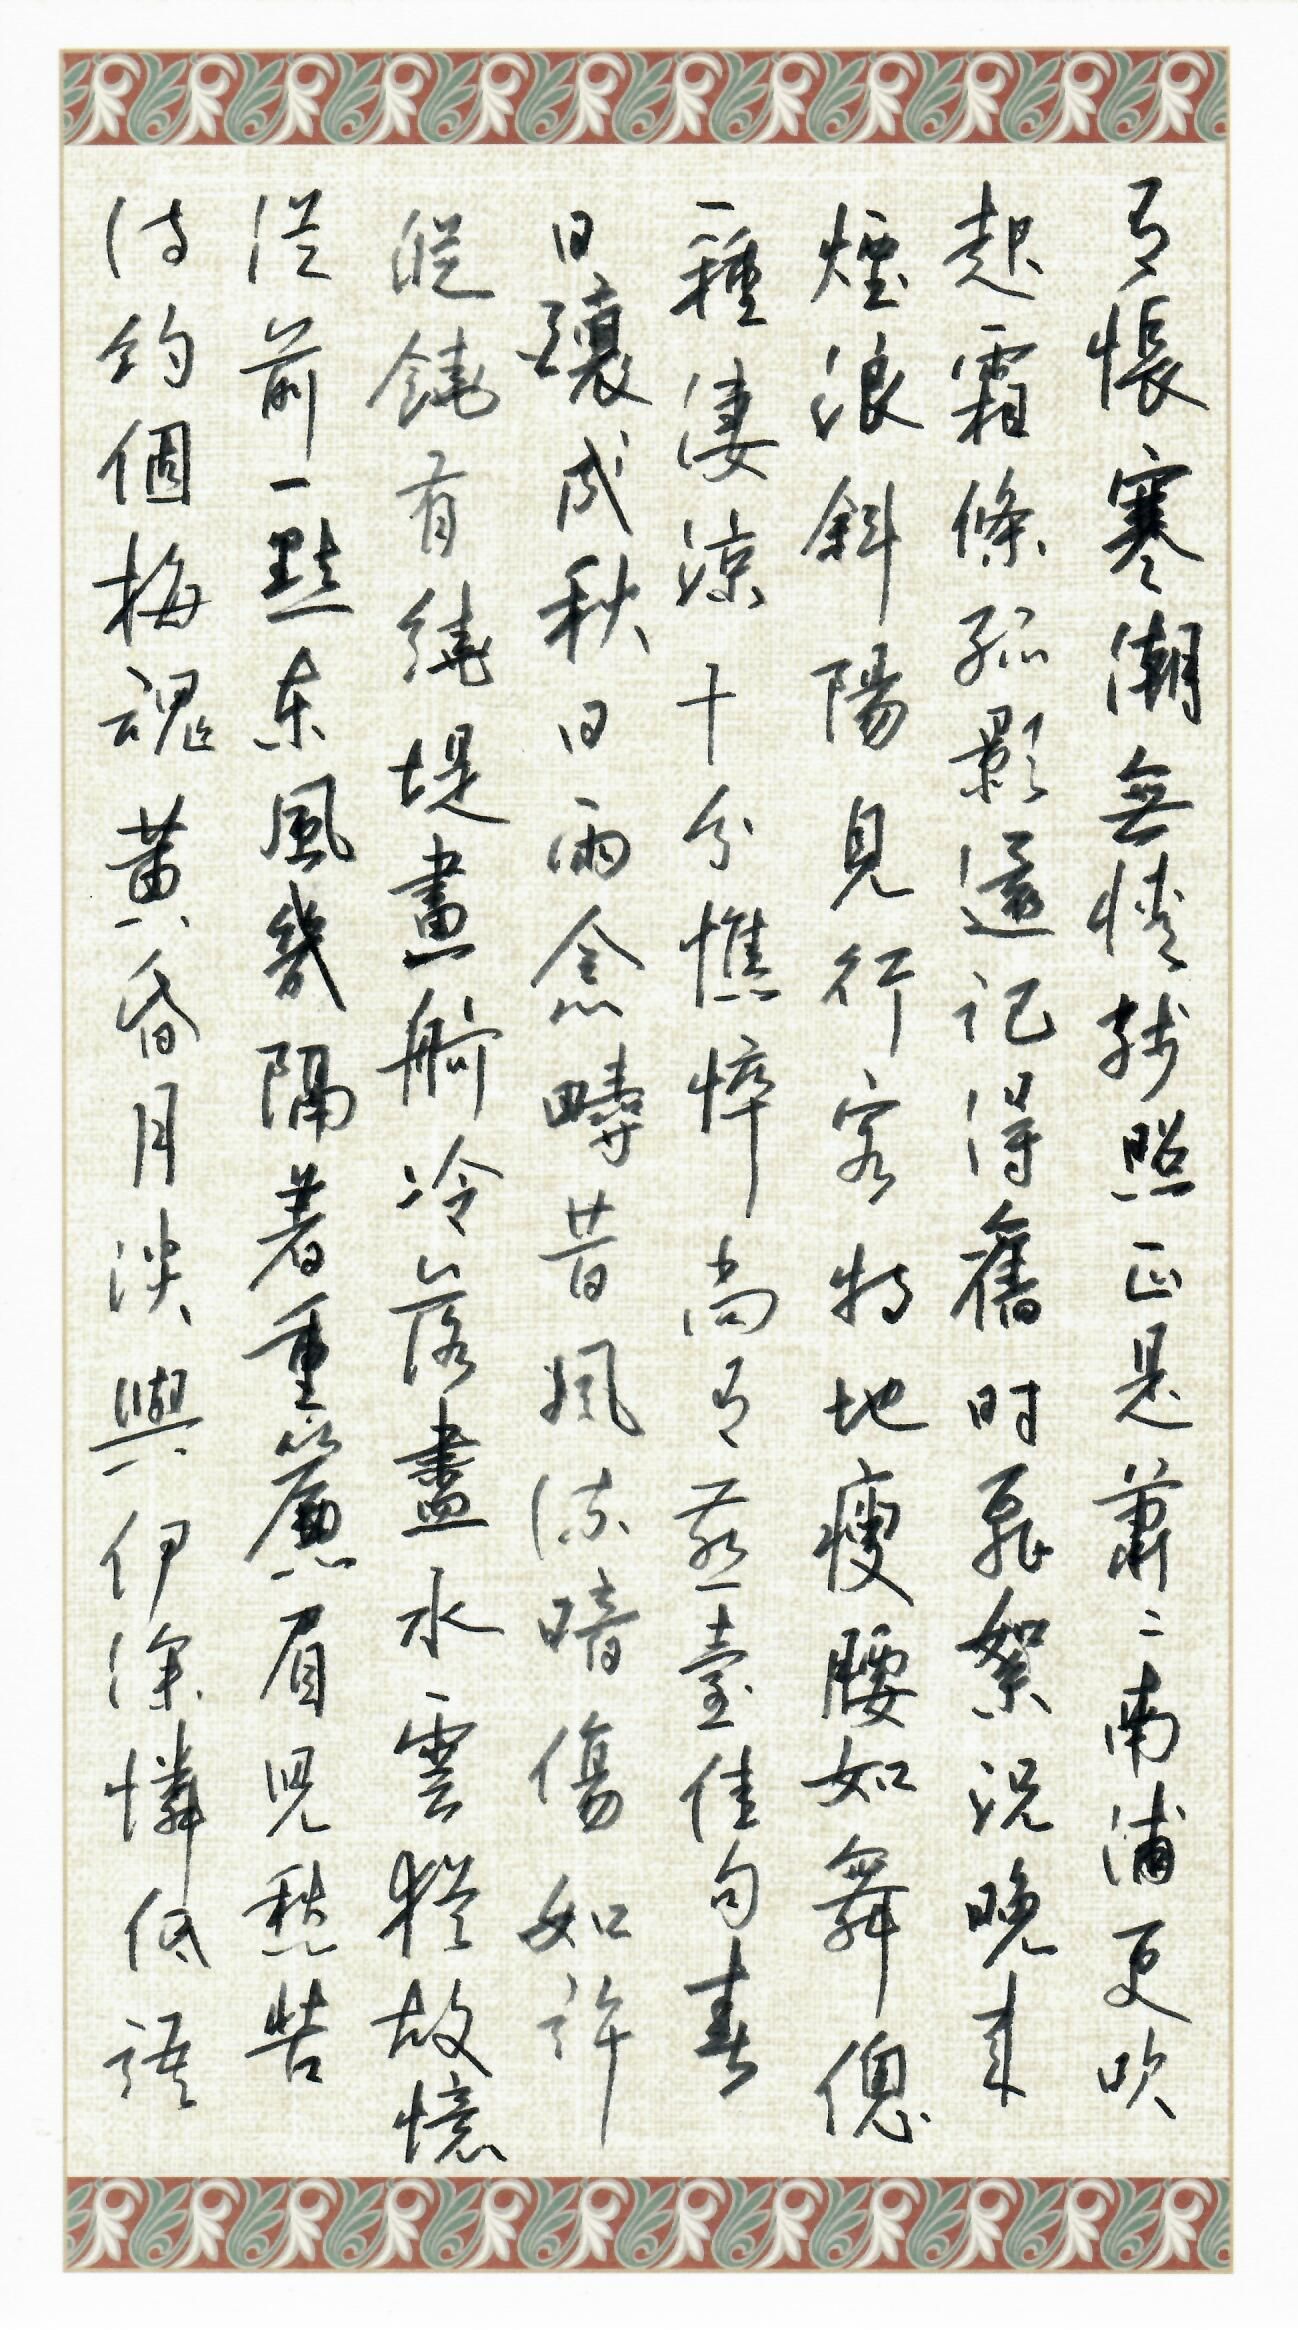 有悵寒潮無情殘照正是蕭〻南浦更吹
起霜條孤影還記得舊时飛絮況晚来
煙浪斜陽見行客特地瘦腰如舞總
一種淒涼十分憔悴尚有燕臺佳句春
日釀成秋日雨念疇昔風流暗傷如許
縱饒有繞堤畫舸冷落盡水雲猶故憶
從前一點东風幾隔著重簾眉兒愁苦
待約個梅魂黃昏月淡與伊深憐低語